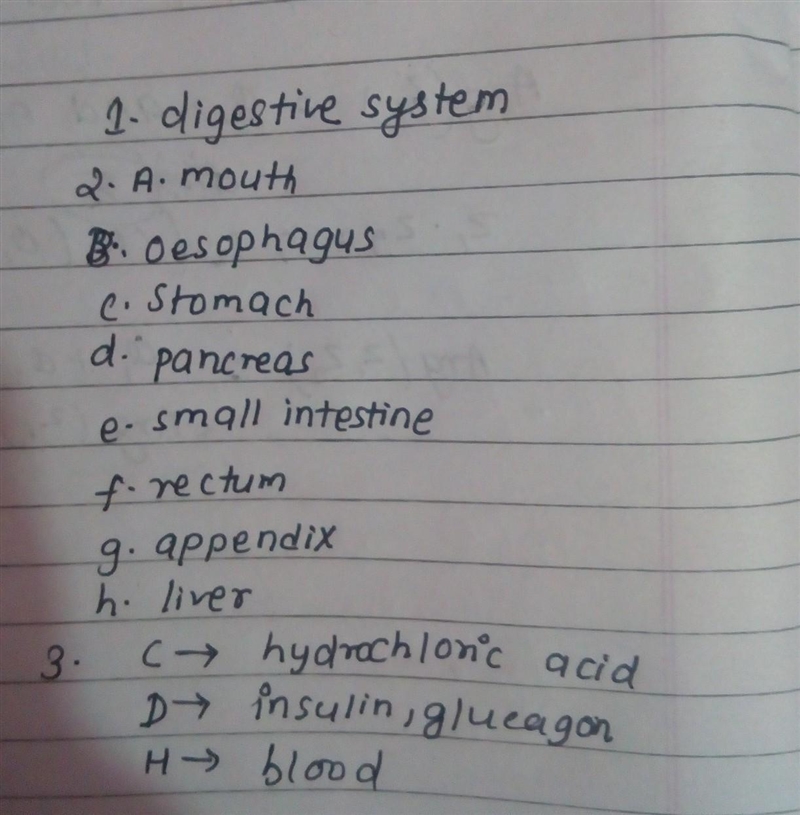 1. digestive system
2. A. mouth
B. oesophagus
c. Stomach
d. pancreas
e. small intestine
f. rectum
g. appendix
h. liver
3. C → hydrochloric acid
D → insulin, glueagon
H → blood